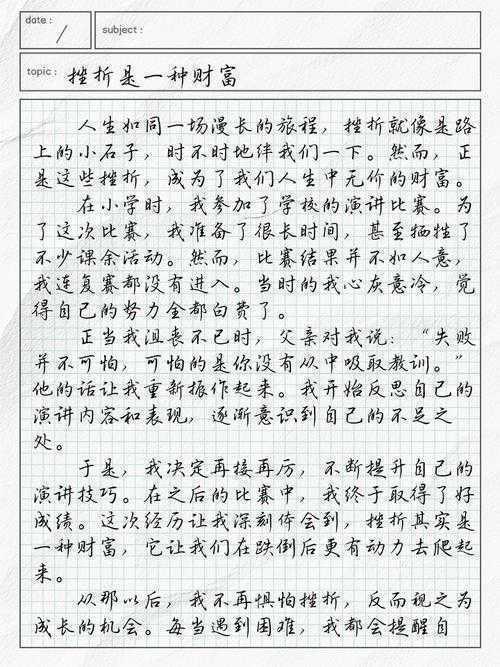 date :
subject :
topic : 挫折是一种财富
人生如同一场漫长的旅程，挫折就像是路
上的小石子，时不时地绊我们一下。然而，正
是这些挫折，成为了我们人生中无价的财富。
在小学时，我参加了学校的演讲比赛。为
了这次比赛，我准备了很长时间，甚至牺牲了
不少课余活动。然而，比赛结果并不如人意，
我连复赛都没有进入。当时的我心灰意冷，觉
得自己的努力全都白费了。
正当我沮丧不已时，父亲对我说：“失败
并不可怕，可怕的是你没有从中吸取教训。”
他的话让我重新振作起来。我开始反思自己的
演讲内容和表现，逐渐意识到自己的不足之
处。
于是，我决定再接再厉，不断提升自己的
演讲技巧。在之后的比赛中，我终于取得了好
成绩。这次经历让我深刻体会到，挫折其实是
一种财富，它让我们在跌倒后更有动力去爬起
来。
从那以后，我不再惧怕挫折，反而视之为
成长的机会。每当遇到困难，我都会提醒自